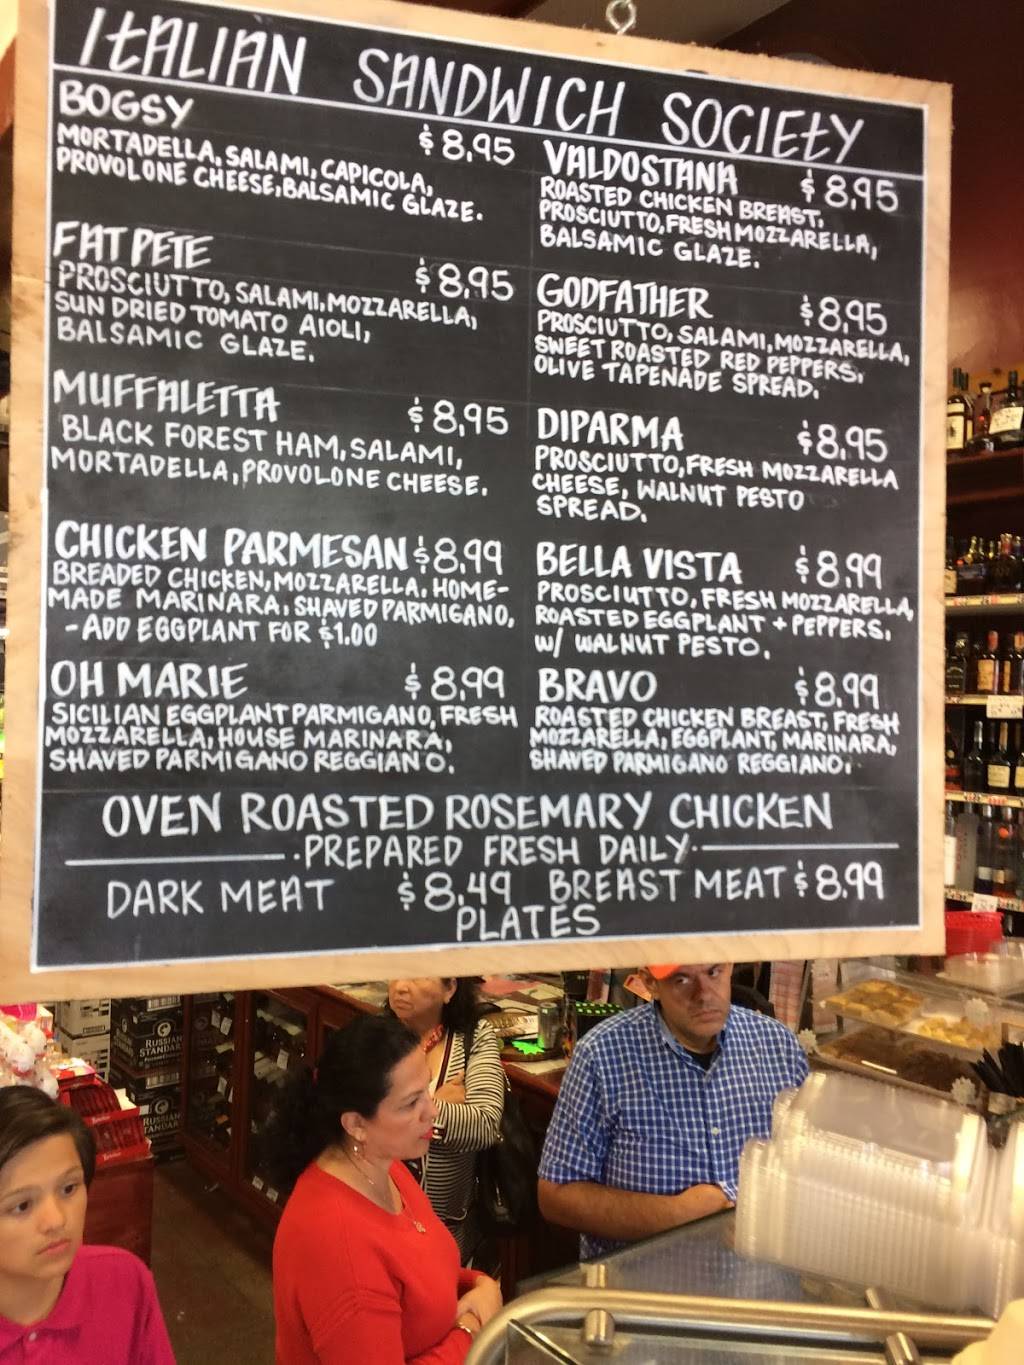 ITALIAN SANDWICH SOCIETY
BOGSY $8,95
MORTADELLA, SALAMI, CAPICOLA,
PROVOLONE CHEESE, BALSAMIC GLAZE.
FAT PETE $8,95
PROSCIUTTO, SALAMI, MOZZARELLA,
SUN DRIED TOMATO AIOLI,
BALSAMIC GLAZE.
MUFFALETTA $8,95
BLACK FOREST HAM, SALAMI,
MORTADELLA, PROVOLONE CHEESE.
CHICKEN PARMESAN $8.99
BREADED CHICKEN, MOZZARELLA, HOME-
MADE MARINARA, SHAVED PARMIGANO,
- ADD EGGPLANT FOR $1.00
OH MARIE $8,99
SICILIAN EGGPLANT PARMIGANO, FRESH
MOZZARELLA, HOUSE MARINARA,
SHAVED PARMIGANO REGGIANO.
VALDOSTANA $8,95
ROASTED CHICKEN BREAST,
PROSCIUTTO, FRESH MOZZARELLA,
BALSAMIC GLAZE.
GODFATHER $8,95
PROSCIUTTO, SALAMI, MOZZARELLA,
SWEET ROASTED RED PEPPERS,
OLIVE TAPENADE SPREAD.
DIPARMA $8,95
PROSCIUTTO, FRESH MOZZARELLA
CHEESE, WALNUT PESTO
SPREAD.
BELLA VISTA $8,99
PROSCIUTTO, FRESH MOZZARELLA,
ROASTED EGGPLANT + PEPPERS,
W/ WALNUT PESTO.
BRAVO $8,99
ROASTED CHICKEN BREAST, FRESH
MOZZARELLA, EGGPLANT, MARINARA,
SHAVED PARMIGANO REGGIANO.
OVEN ROASTED ROSEMARY CHICKEN
·PREPARED FRESH DAILY·
DARK MEAT $8.49 BREAST MEAT $8.99
PLATES
RUSSIAN
STANDAR
RUSSIAN
STANDAR